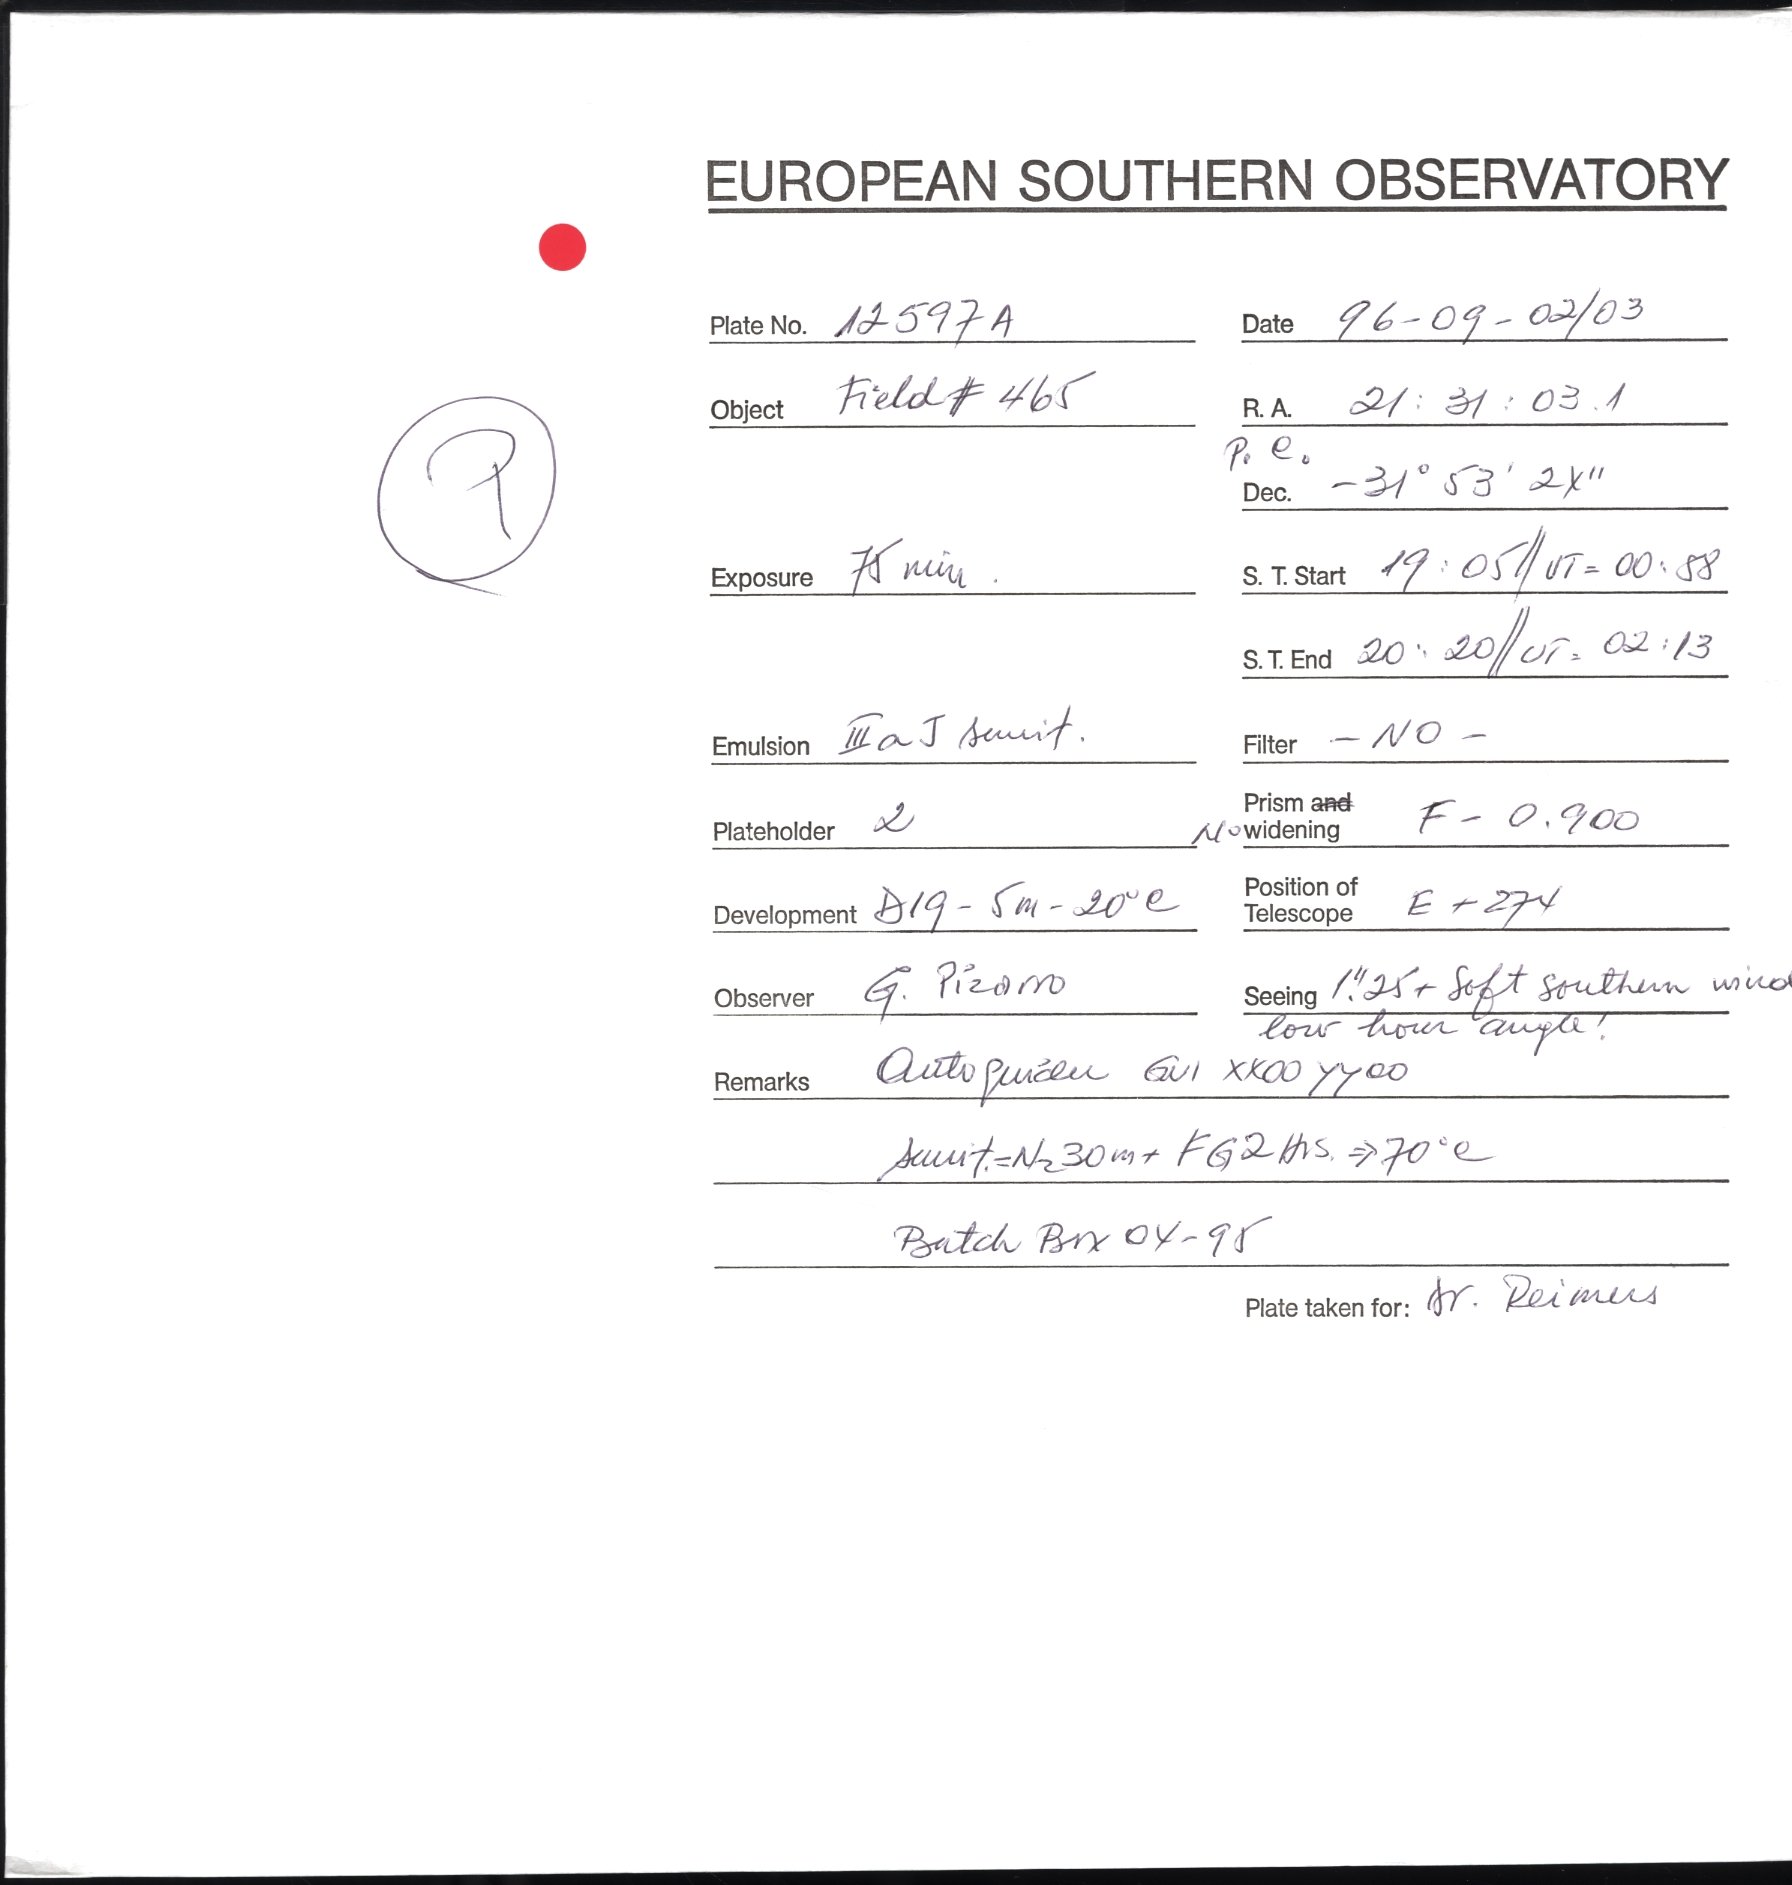 EUROPEAN SOUTHERN OBSERVATORY
Plate No. 12597A Date 96-09-02/03
Object Field # 465 R. A. 21:31:03.1
P. e.
Dec. -31° 53' 24"
Exposure 75 min. S. T. Start 19:05//UT= 00:58
S. T. End 20:20//UT= 02:13
Emulsion IIIaJ sensit. Filter - NO -
Plateholder 2 Prism and No widening F - 0.900
Development D19 - 5m - 20°C Position of Telescope E + 274
Observer G. Pizarro Seeing 1."25 + Soft southern wind
low hour angle!
Remarks Autoguider GV1 XX00 YY00
sensit.=N2 30m + FG 2 Hrs. ⇒ 70°C
Batch Box 04-95
Plate taken for: Dr. Reimers